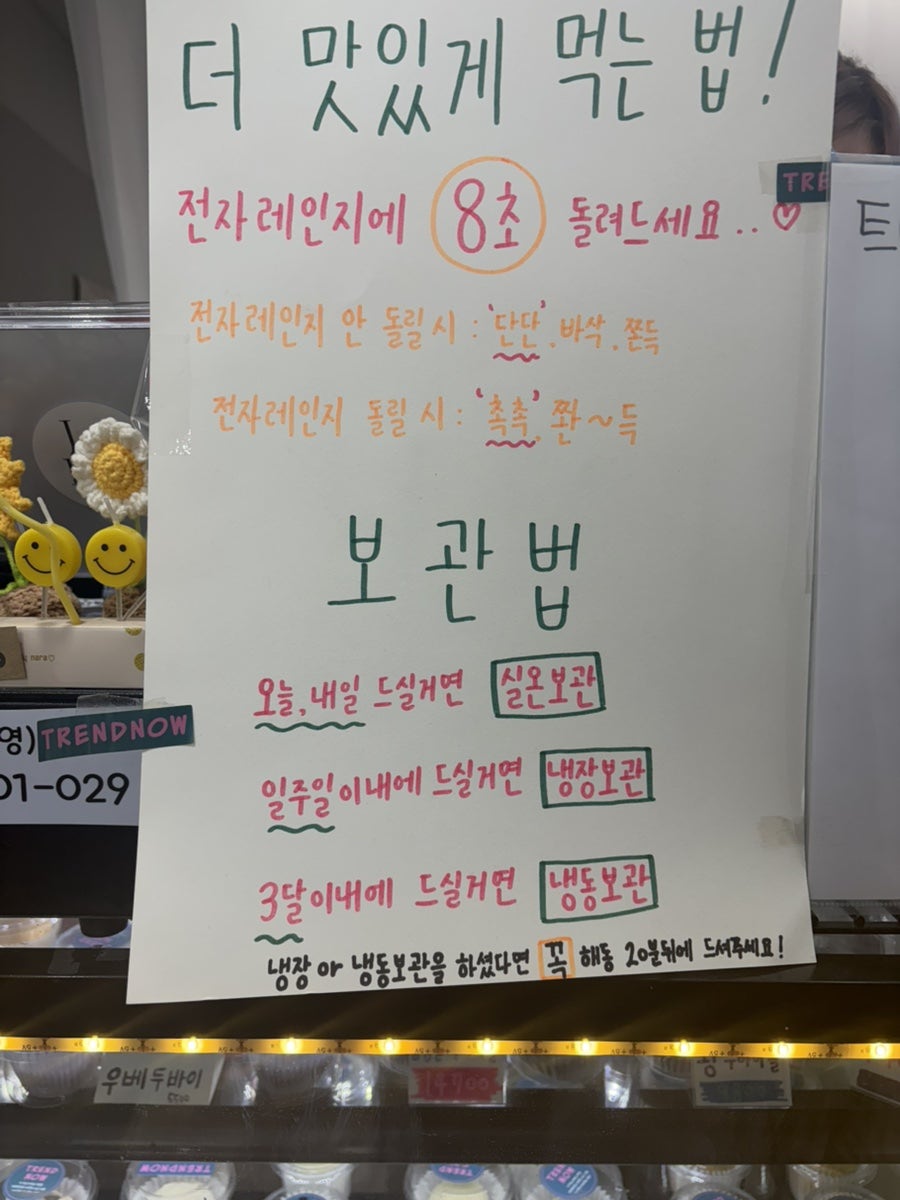 더 맛있게 먹는 법!
전자레인지에 8초 돌려드세요..♡
TRE
트
전자레인지 안 돌릴 시 : '단단', 바삭, 쫀득
전자레인지 돌릴 시 : '촉촉', 쫜~득
보관법
오늘, 내일 드실거면 실온보관
영) TRENDNOW
01-029
일주일 이내에 드실거면 냉장보관
3달이내에 드실거면 냉동보관
냉장 or 냉동보관을 하셨다면 꼭 해동 20분뒤에 드셔주세요!
우베두바이
5500
14700
TREND NOW
TRENDNOW
TREND NOW